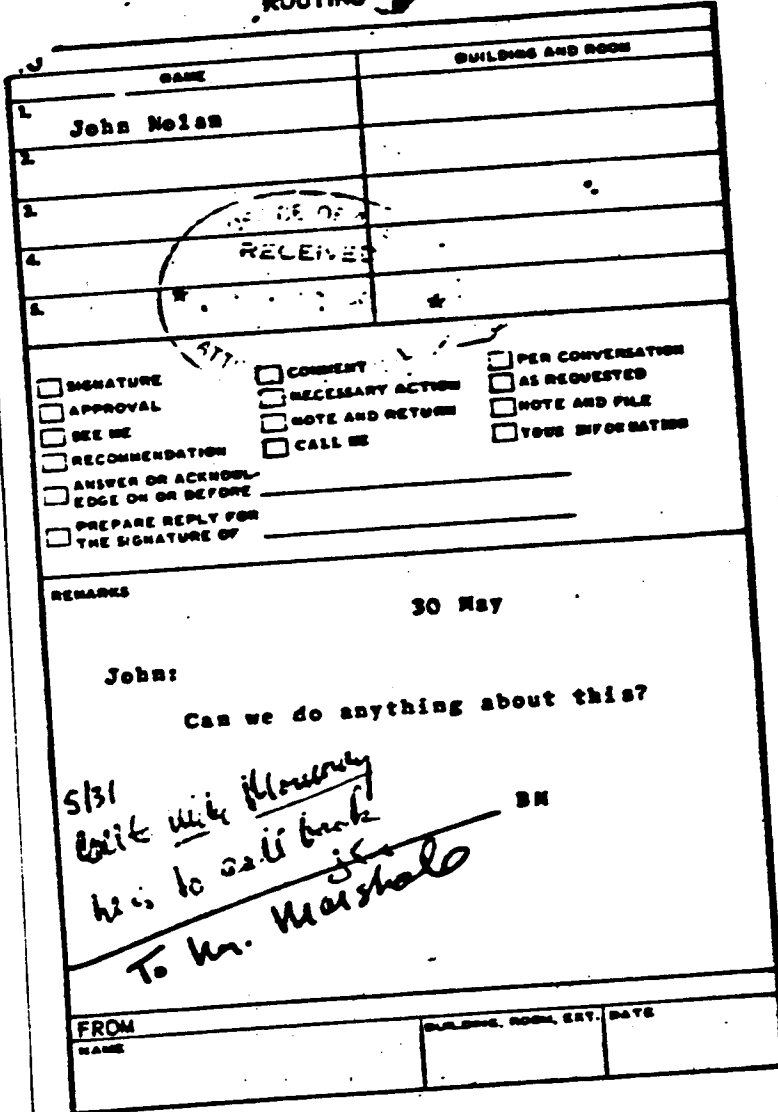 ROUTING
NAME
BUILDING AND ROOM
1.
John Nolan
2.
3.
4.
RECEIVED
5.
SIGNATURE
APPROVAL
SEE ME
RECOMMENDATION
ANSWER OR ACKNOWL-
EDGE ON OR BEFORE
PREPARE REPLY FOR
THE SIGNATURE OF
COMMENT
NECESSARY ACTION
NOTE AND RETURN
CALL ME
PER CONVERSATION
AS REQUESTED
NOTE AND FILE
YOUR INFORMATION
REMARKS
30 May
John:
Can we do anything about this?
5/31
BM
he is to call back
To Mr. Marshall
FROM
NAME
BUILDING, ROOM, EXT.
DATE